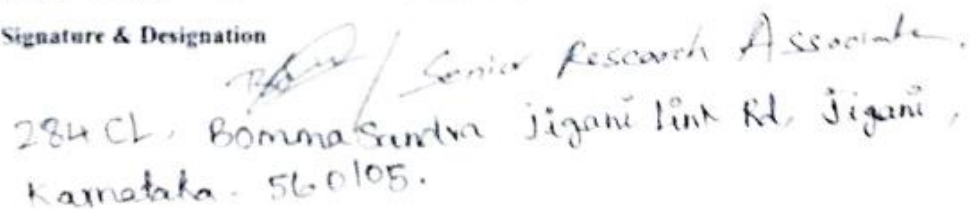 Signature & Designation
/ Senior Research Associate.
284 CL, Bommasandra jigani link Rd, Jigani,
Karnataka. 560105.